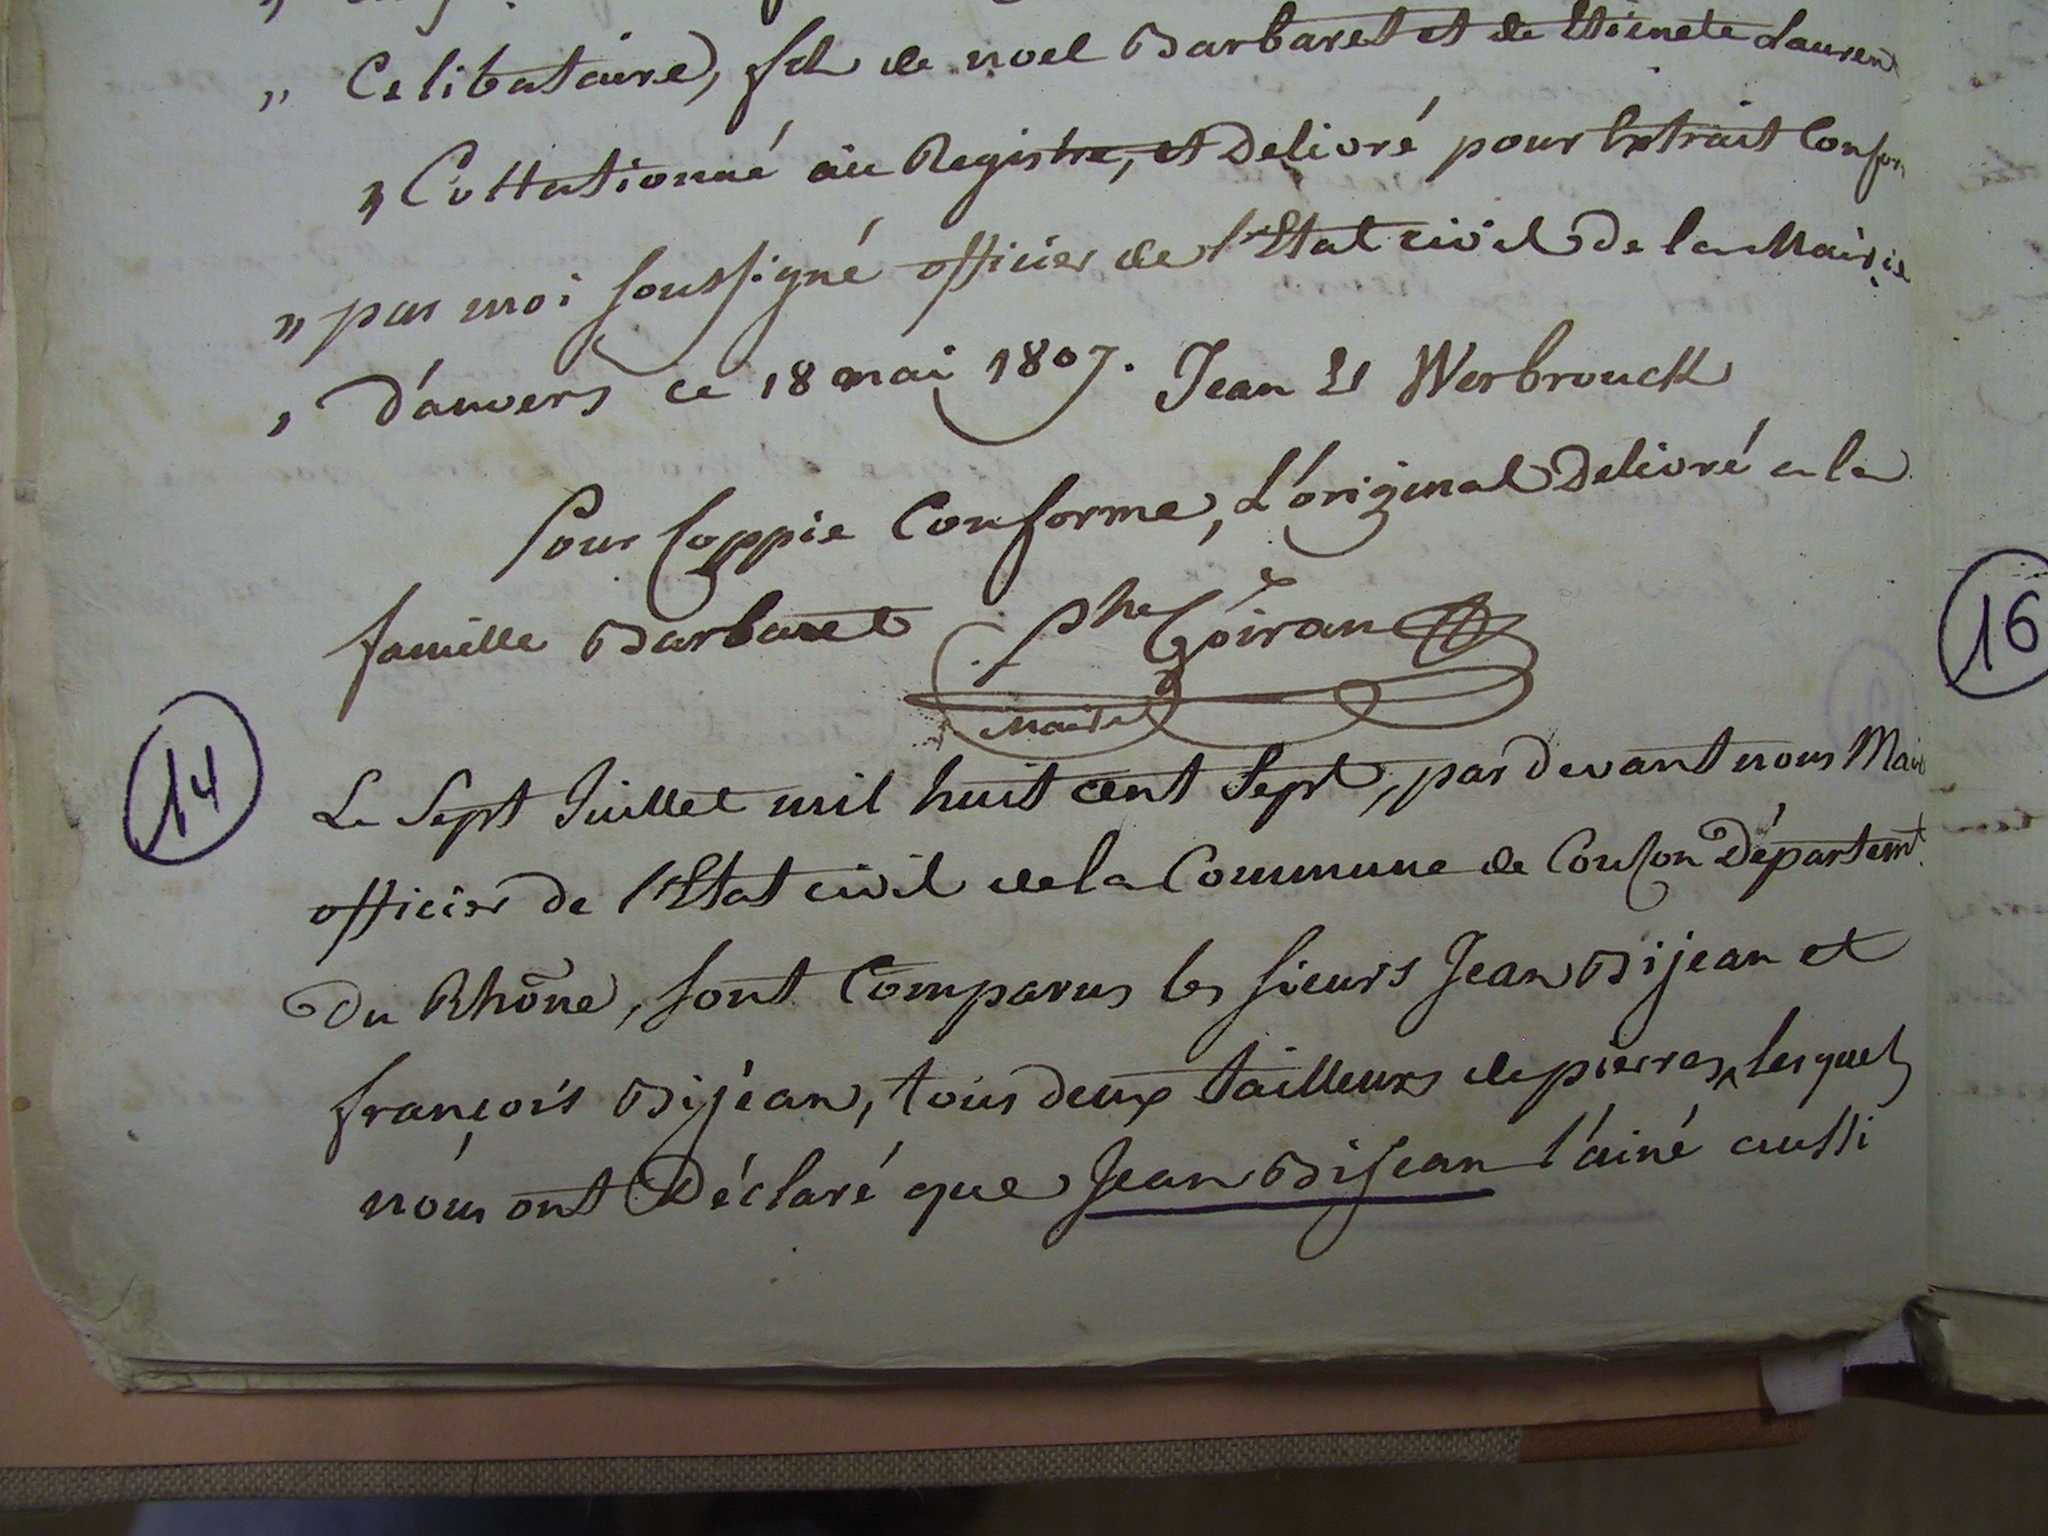 " Celibataire, fils de noel Barbaret et de Etienete Lauren
" Collationné au Registre, et Delivré pour Extrait Confor
" par moi soussigné officier de l'Etat civil de la Mairie
" D'anvers ce 18 mai 1807. Jean E Werbrouck
Pour Coppie Conforme, L'original Delivré a la
famille Barbaret Phe Goiran
Maire
14
16
Le Sept Juillet mil huit cent Sept, par devant nous Maire
officier de l'Etat civil de la Commune de Couson Départemt.
Du Rhône, sont Comparus les sieurs Jean Bijean et
françois Bijean, tous deux tailleurs de pierres, lesquels
nous ont Déclaré que Jean Bijean l'ainé aussi